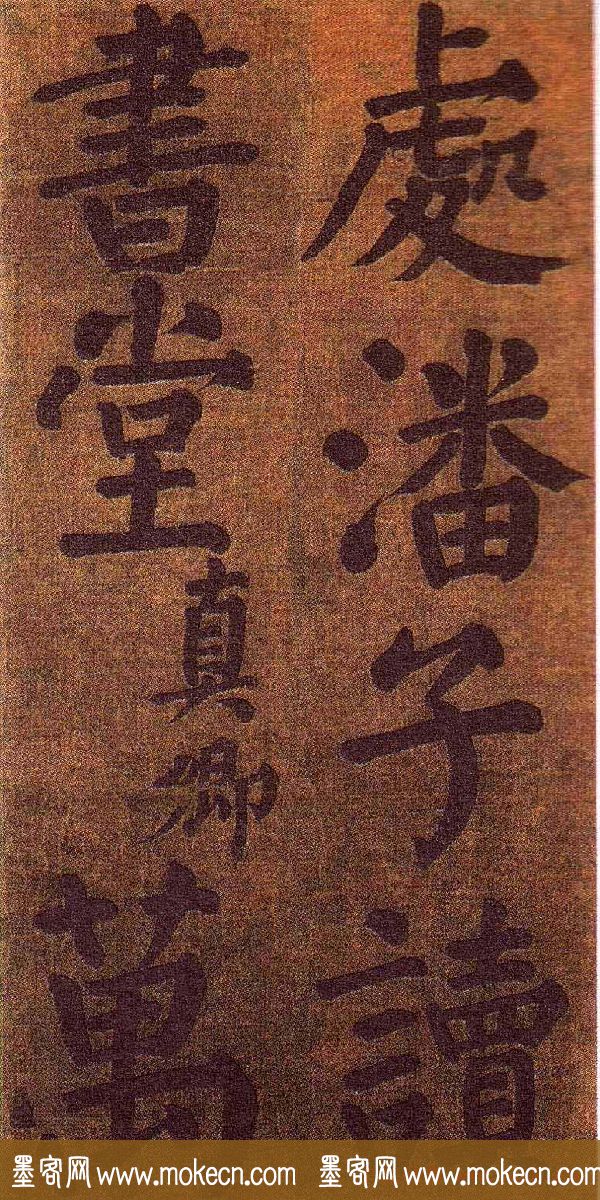 處潘子讀
書堂真卿萬
墨客网 www.mokecn.com 墨客网 www.mokecn.com